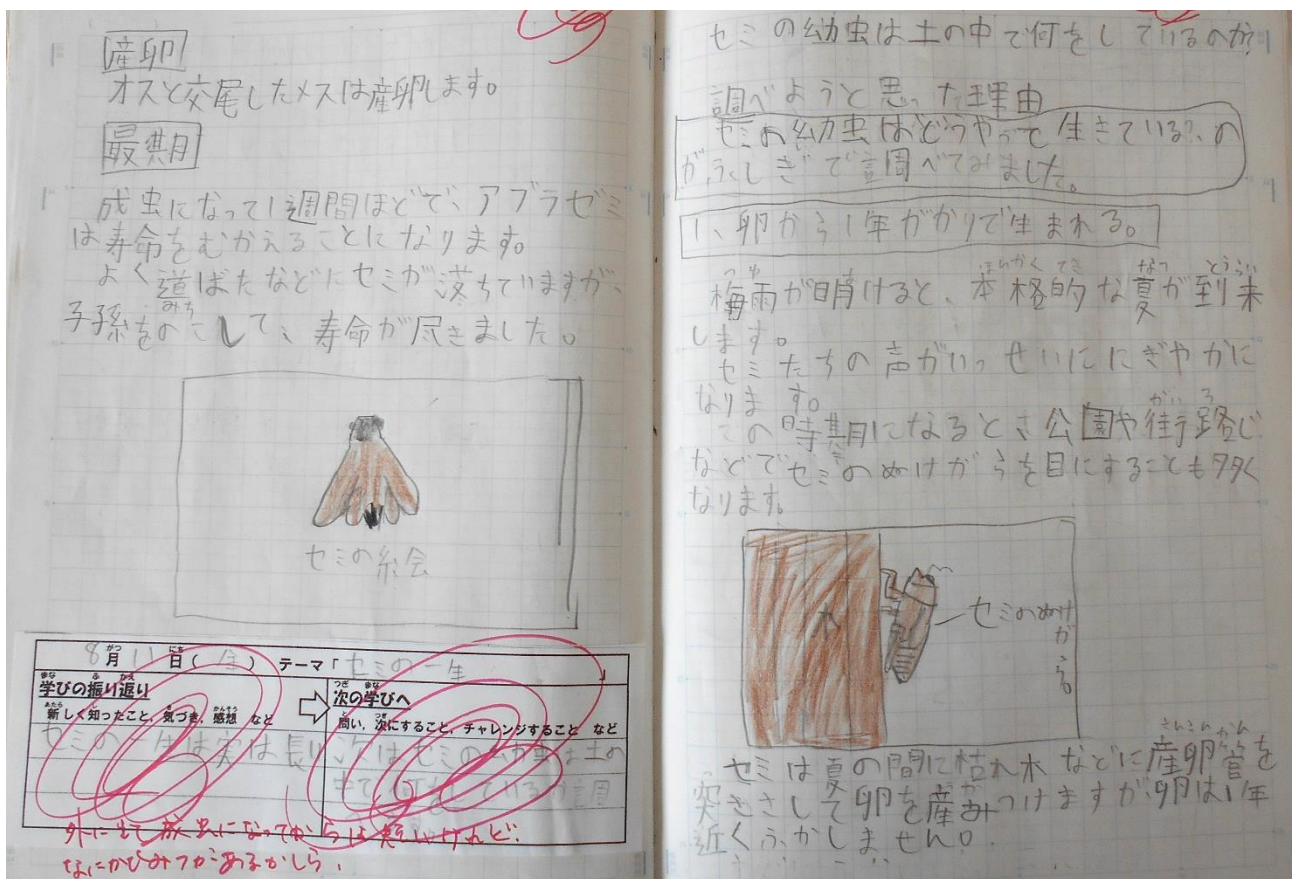 産卵
オスと交尾したメスは産卵します。
最期
成虫になって1週間ほどで、アブラゼミ
は寿命をむかえることになります。
よく道ばたなどにセミが落ちていますが、
みち
子孫をのこして、寿命が尽きました。
セミの絵
8月11日(金) テーマ「セミの一生」
がつ にち
学びの振り返り
まな ふ かえ
新しく知ったこと、気づき、感想 など
あたら し き かんそう
セミの一生は実は長い
次の学びへ
つぎ まな
問い、次にすること、チャレンジすること など
と つぎ
次はセミの幼虫は土の
中で何をしているか調
外に出て成虫になってからは短いけれど
なにかひみつがあるかしら。
セミの幼虫は土の中で何をしているのか?
調べようと思った理由
セミの幼虫はどうやって生きている?の
がふしぎで調べてみました。
1、卵から1年がかりで生まれる。
つゆ ほんかくてき なつ とうらい
梅雨が明けると、本格的な夏が到来
します。
セミたちの声がいっせいににぎやかに
なります。
がいろ
この時期になるとさ公園や街路じ
などでセミのぬけがらを目にすることも多く
なります。
木
セミのぬけがら
さんらんかん
セミは夏の間に枯れ木などに産卵管を
突きさして卵を産みつけますが卵は1年
近くふかしません。